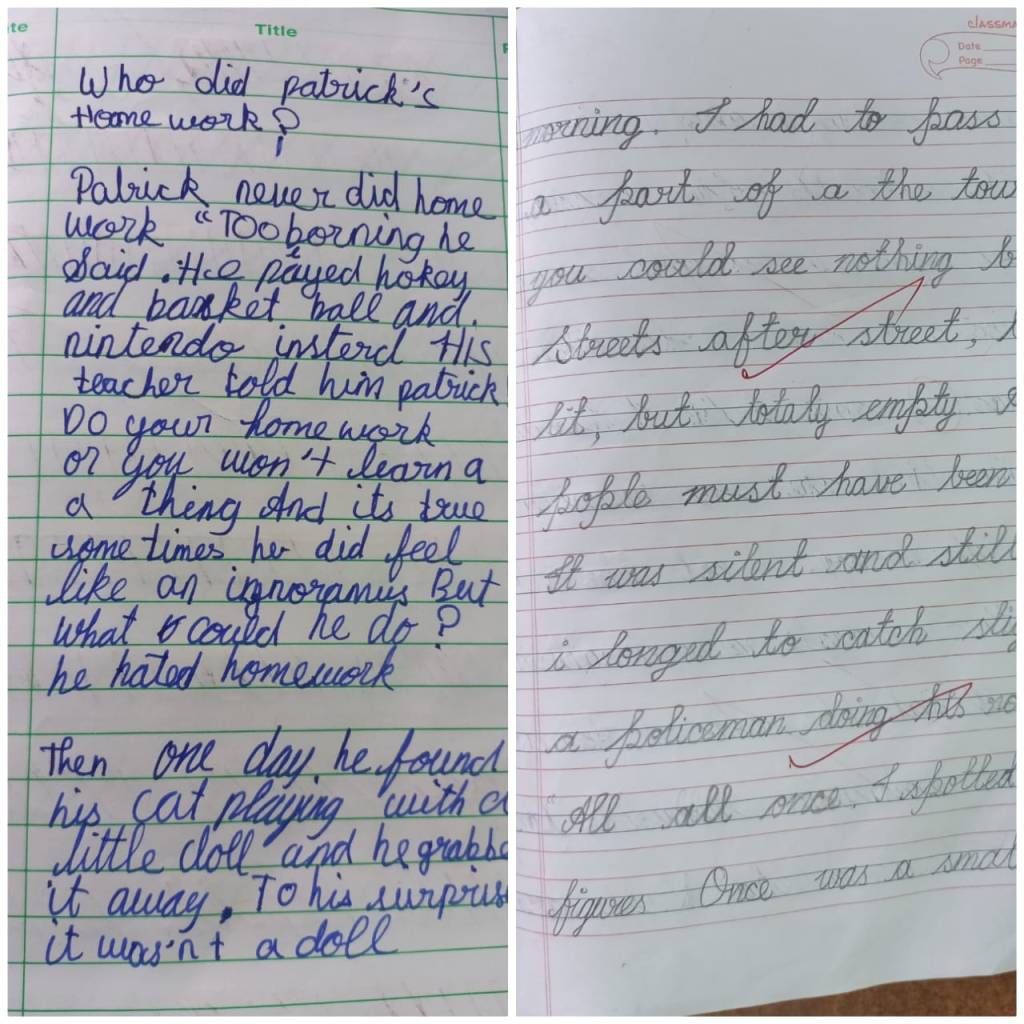 te
Title
Who did patrick's
Home work?
Patrick never did home
work "TOO borning he
Said. He payed hokey
and basket ball and.
nintendo insterd HIS
teacher told him patrick
DO your home work
or you won't learn a
a thing And its true
some times he did feel
like an ignoramus But
what could he do?
he hated homework
Then one day. he found
his cat playing with a
little doll and he grabbe
it away. To his surpris
it was'nt a doll
classma
Date
Page
morning. I had to pass
a part of a the tow
you could see nothing b
Streets after street,
lit, but totaly empty
pople must have been
It was silent and still
i longed to catch
a policeman doing his
"All all once. I spotted
figures Once was a smal